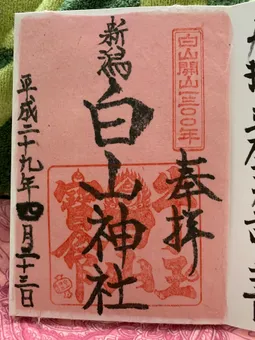 白山開山一三〇〇年
奉拝
新潟
白山神社
平成二十九年四月二十三日